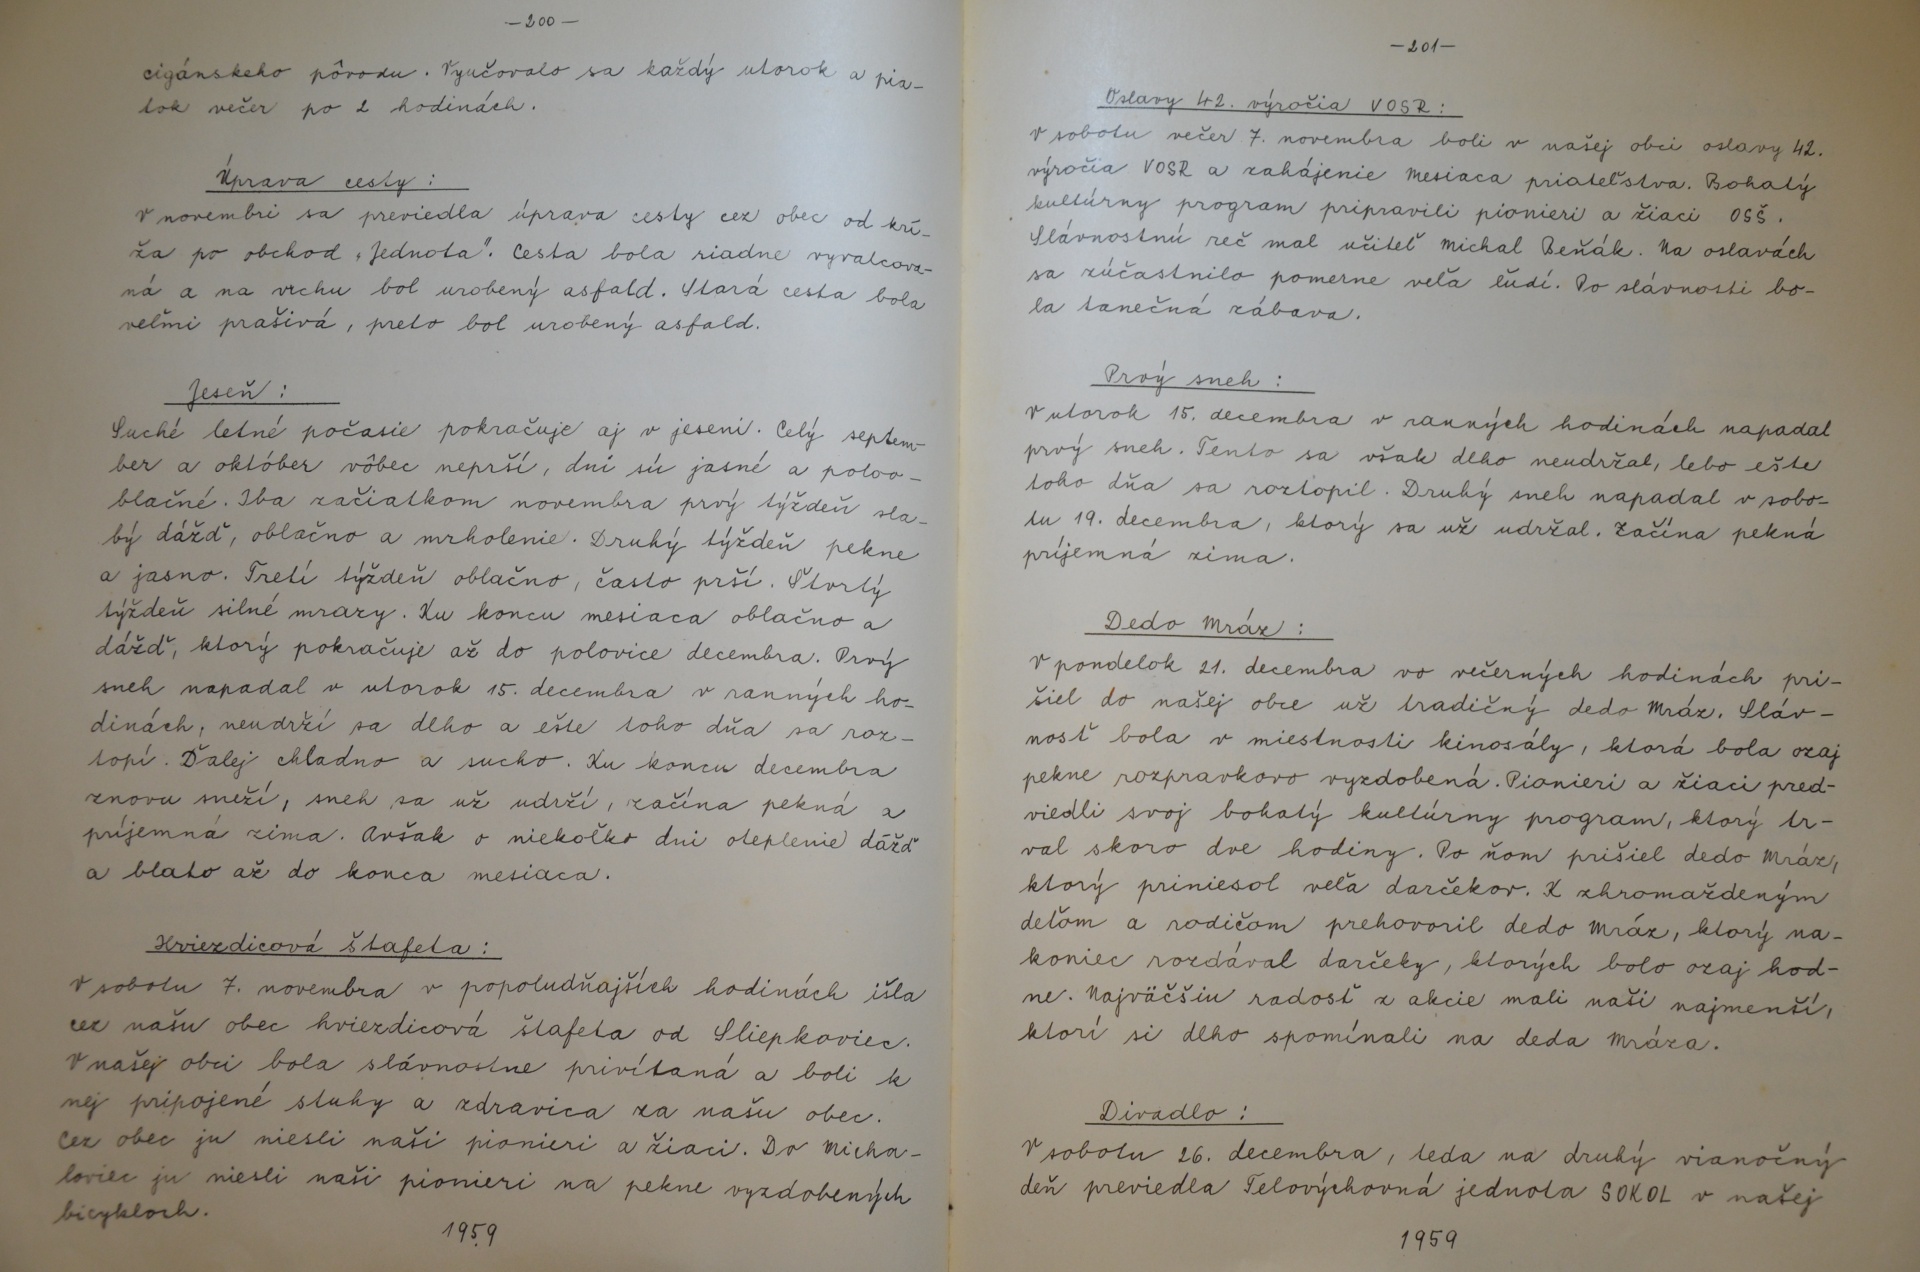 —200—
cigánskeho pôvodu. Vyučovalo sa každý utorok a pia-
tok večer po 2 hodinách.
Úprava cesty:
V novembri sa previedla úprava cesty cez obec od krí-
ža po obchod „Jednota". Cesta bola riadne vyvalcova-
ná a na vrchu bol urobený asfald. Stará cesta bola
veľmi prašivá, preto bol urobený asfald.
Jeseň:
Suché letné počasie pokračuje aj v jeseni. Celý septem-
ber a október vôbec neprší, dni sú jasné a poloo-
blačné. Iba začiatkom novembra prvý týždeň sla-
bý dážď, oblačno a mrholenie. Druhý týždeň pekne
a jasno. Tretí týždeň oblačno, často prší. Štvrtý
týždeň silné mrazy. Ku koncu mesiaca oblačno a
dážď, ktorý pokračuje až do polovice decembra. Prvý
sneh napadal v utorok 15. decembra v ranných ho-
dinách, neudrží sa dlho a ešte toho dňa sa roz-
topí. Ďalej chladno a sucho. Ku koncu decembra
znovu sneží, sneh sa už udrží, začína pekná a
príjemná zima. Avšak o niekoľko dni oteplenie dážď
a blato až do konca mesiaca.
Hviezdicová štafeta:
V sobotu 7. novembra v popoludňajších hodinách išla
cez našu obec hviezdicová štafeta od Sliepkoviec.
V našej obci bola slávnostne privítaná a boli k
nej pripojené stuhy a zdravica za našu obec.
Cez obec ju niesli naši pionieri a žiaci. Do Micha-
loviec ju niesli naši pionieri na pekne vyzdobených
bicykloch.
1959
—201—
Oslavy 42. výročia VOSR:
V sobotu večer 7. novembra boli v našej obci oslavy 42.
výročia VOSR a zahájenie Mesiaca priateľstva. Bohatý
kultúrny program pripravili pionieri a žiaci OSŠ.
Slávnostnú reč mal učiteľ Michal Beňák. Na oslavách
sa zúčastnilo pomerne veľa ľudí. Po slávnosti bo-
la tanečná zábava.
Prvý sneh:
V utorok 15. decembra v ranných hodinách napadal
prvý sneh. Tento sa však dlho neudržal, lebo ešte
toho dňa sa roztopil. Druhý sneh napadal v sobo-
tu 19. decembra, ktorý sa už udržal. Začína pekná
príjemná zima.
Dedo Mráz:
V pondelok 21. decembra vo večerných hodinách pri-
šiel do našej obce už tradičný dedo Mráz. Sláv-
nosť bola v miestnosti kinosály, ktorá bola ozaj
pekne rozprávkovo vyzdobená. Pionieri a žiaci pred-
viedli svoj bohatý kultúrny program, ktorý tr-
val skoro dve hodiny. Po ňom prišiel dedo Mráz,
ktorý priniesol veľa darčekov. K zhromaždeným
deťom a rodičom prehovoril dedo Mráz, ktorý na-
koniec rozdával darčeky, ktorých bolo ozaj hod-
ne. Najväčšiu radosť z akcie mali naši najmenší,
ktorí si dlho spomínali na deda Mráza.
Divadlo:
V sobotu 26. decembra, teda na druhý vianočný
deň previedla Telovýchovná jednota SOKOL v našej
1959